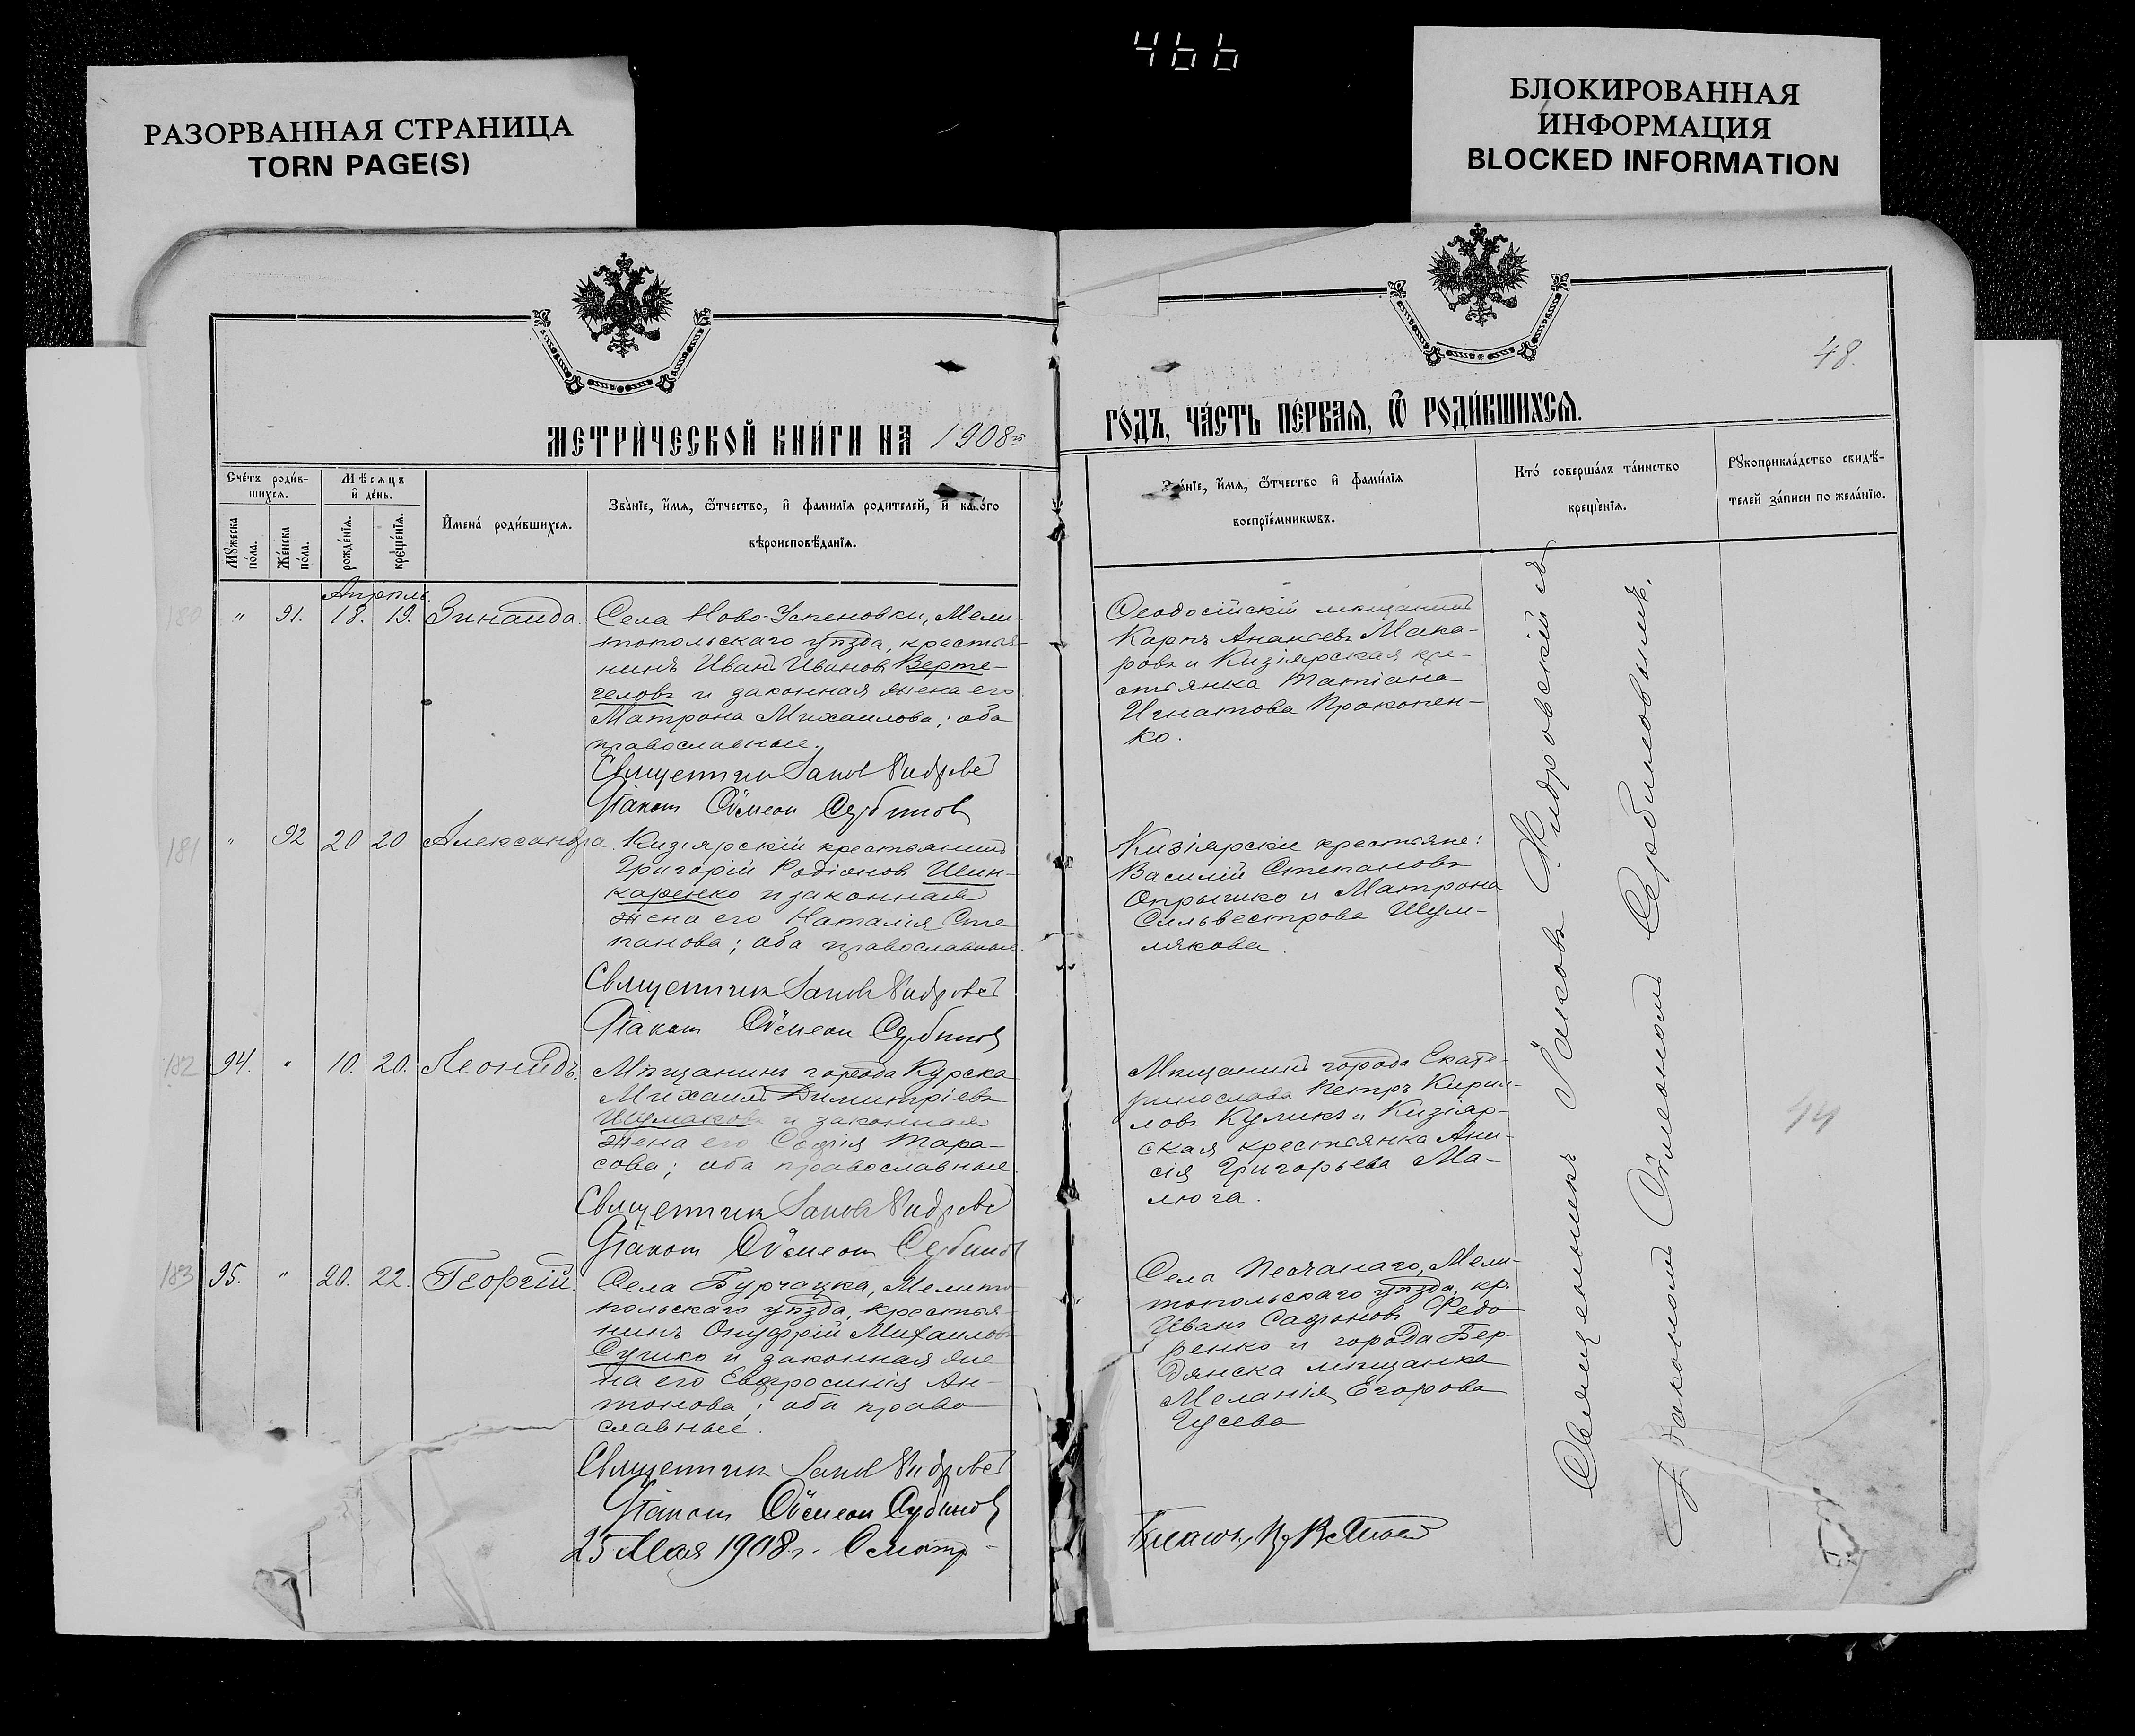 466
РАЗОРВАННАЯ СТРАНИЦА
TORN PAGE(S)
БЛОКИРОВАННАЯ
ИНФОРМАЦИЯ
BLOCKED INFORMATION
48.
МЕТРИЧЕСКОЙ КНИГИ НА 1908й
ГОДЪ, ЧАСТЬ ПЕРВАЯ, Ѿ РОДИВШИХСЯ.
Счетъ родив-
шихся.
Мѣсяцъ
и день.
Мꙋжеска
пола.
Женска
пола.
рожденїя.
крещенїя.
Имена родившихся.
Званїе, имя, ѿтчество, и фамилїя родителей, и какого
вѣроисповѣданїя.
Званїе, имя, ѿтчество и фамилїя
воспрїемникѡвъ.
Кто совершалъ таинство
крещенїя.
Рꙋкоприкладство свидѣ-
телей записи по желанїю.
Апрѣль.
180 " 91. 18. 19. Зинаида.
Села Ново-Успеновки, Мели-
топольскаго уѣзда, крестья-
нинъ Иванъ Ивановъ Верте-
геловъ и законная жена его
Матрона Михаилова; оба
православные.
Священникъ Іаковъ
Діаконъ Сѵмеонъ Сербиновъ
Ѳеодосійскій мѣщанинъ
Карпъ Ананьевъ Мака-
ровъ и Кизіярская кре-
стьянка Татіана
Игнатова Прокопен-
ко.
181 " 92 20 20 Александра.
Кизіярскій крестьянинъ
Григорій Родіоновъ Шин-
каренко и законная
жена его Наталія Сте
панова; оба православные.
Священникъ Іаковъ
Діаконъ Сѵмеонъ Сербиновъ
Кизіярскіе крестьяне:
Василій Степановъ
Опрышко и Матрона
Сильвестрова Шум-
лякова.
182 94. " 10. 20. Леонидъ.
Мѣщанинъ города Курска
Михаилъ Димитріевъ
Шумаковъ и законная
жена его Софія Тара-
сова; оба православные.
Священникъ Іаковъ
Діаконъ Сѵмеонъ Сербиновъ
Мѣщанинъ города Екате-
ринослава Петръ Кирил-
ловъ Куликъ и Кизіяр-
ская крестьянка Ани-
сія Григорьева Ма-
люга.
44
183 95. " 20. 22. Георгій.
Села Бурчацка, Мелито
польскаго уѣзда, крестья
нинъ Онуфрій Михаиловъ
Сушко и законная же
на его Евфросинія Ан-
тонова; оба право
славные.
Священникъ Іаковъ
Діаконъ Сѵмеонъ Сербиновъ
Села Песчанаго, Мели-
топольскаго уѣзда, кр.
Иванъ Сафоновъ Федо
ренко и города Бер-
дянска мѣщанка
Меланія Егорова
Гусева
Священникъ Іаковъ съ
Діакономъ Сѵмеономъ Сербиновымъ.
25 Мая 1908 г.